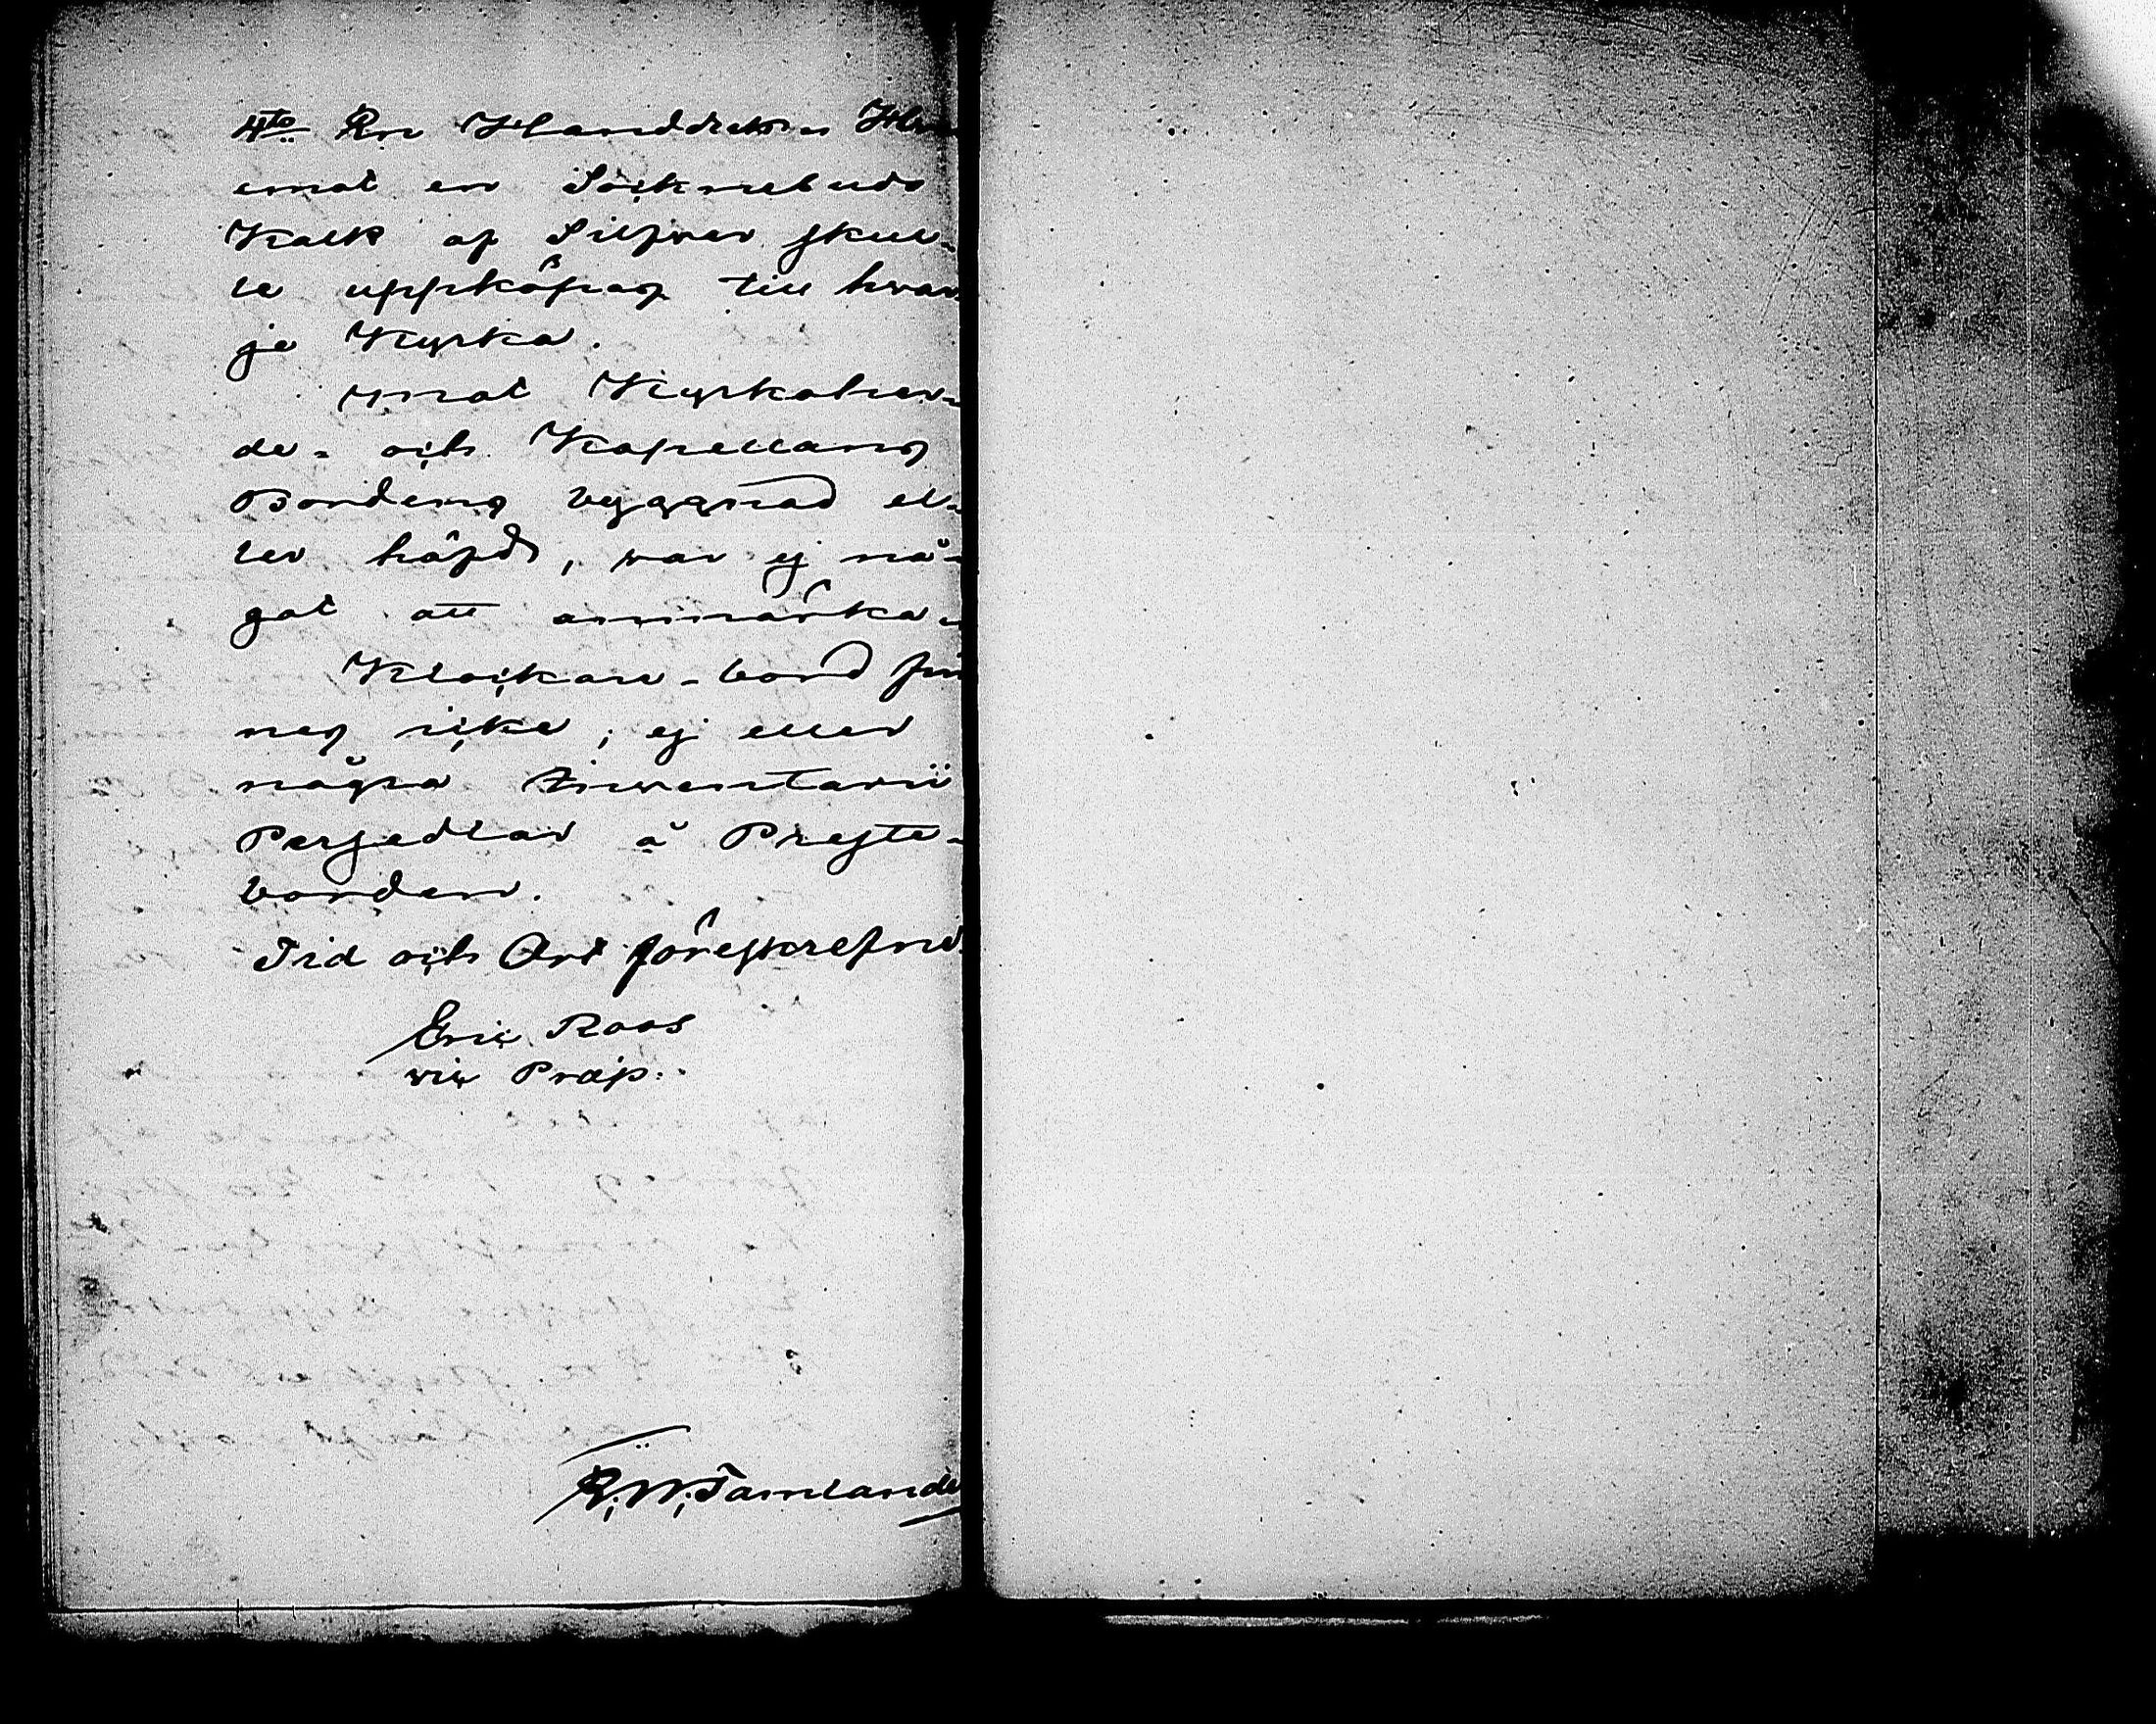 4to En Handduk
emot en Socknebuds
Kalk af Silfver skul-
le uppköpas till hvar
je Kyrka.
Emot Kyrkoher-
de- och Kapellans
Bordens byggnad el-
ler häfd, var ej nå-
got att anmärka.
Klockare-bord fin
nes icke; ej eller
några Inventarii
Persedlar å Preste-
borden.
Tid och Ort föreskrefne
Eric Roos
vic Præp:
R; W; Famlande